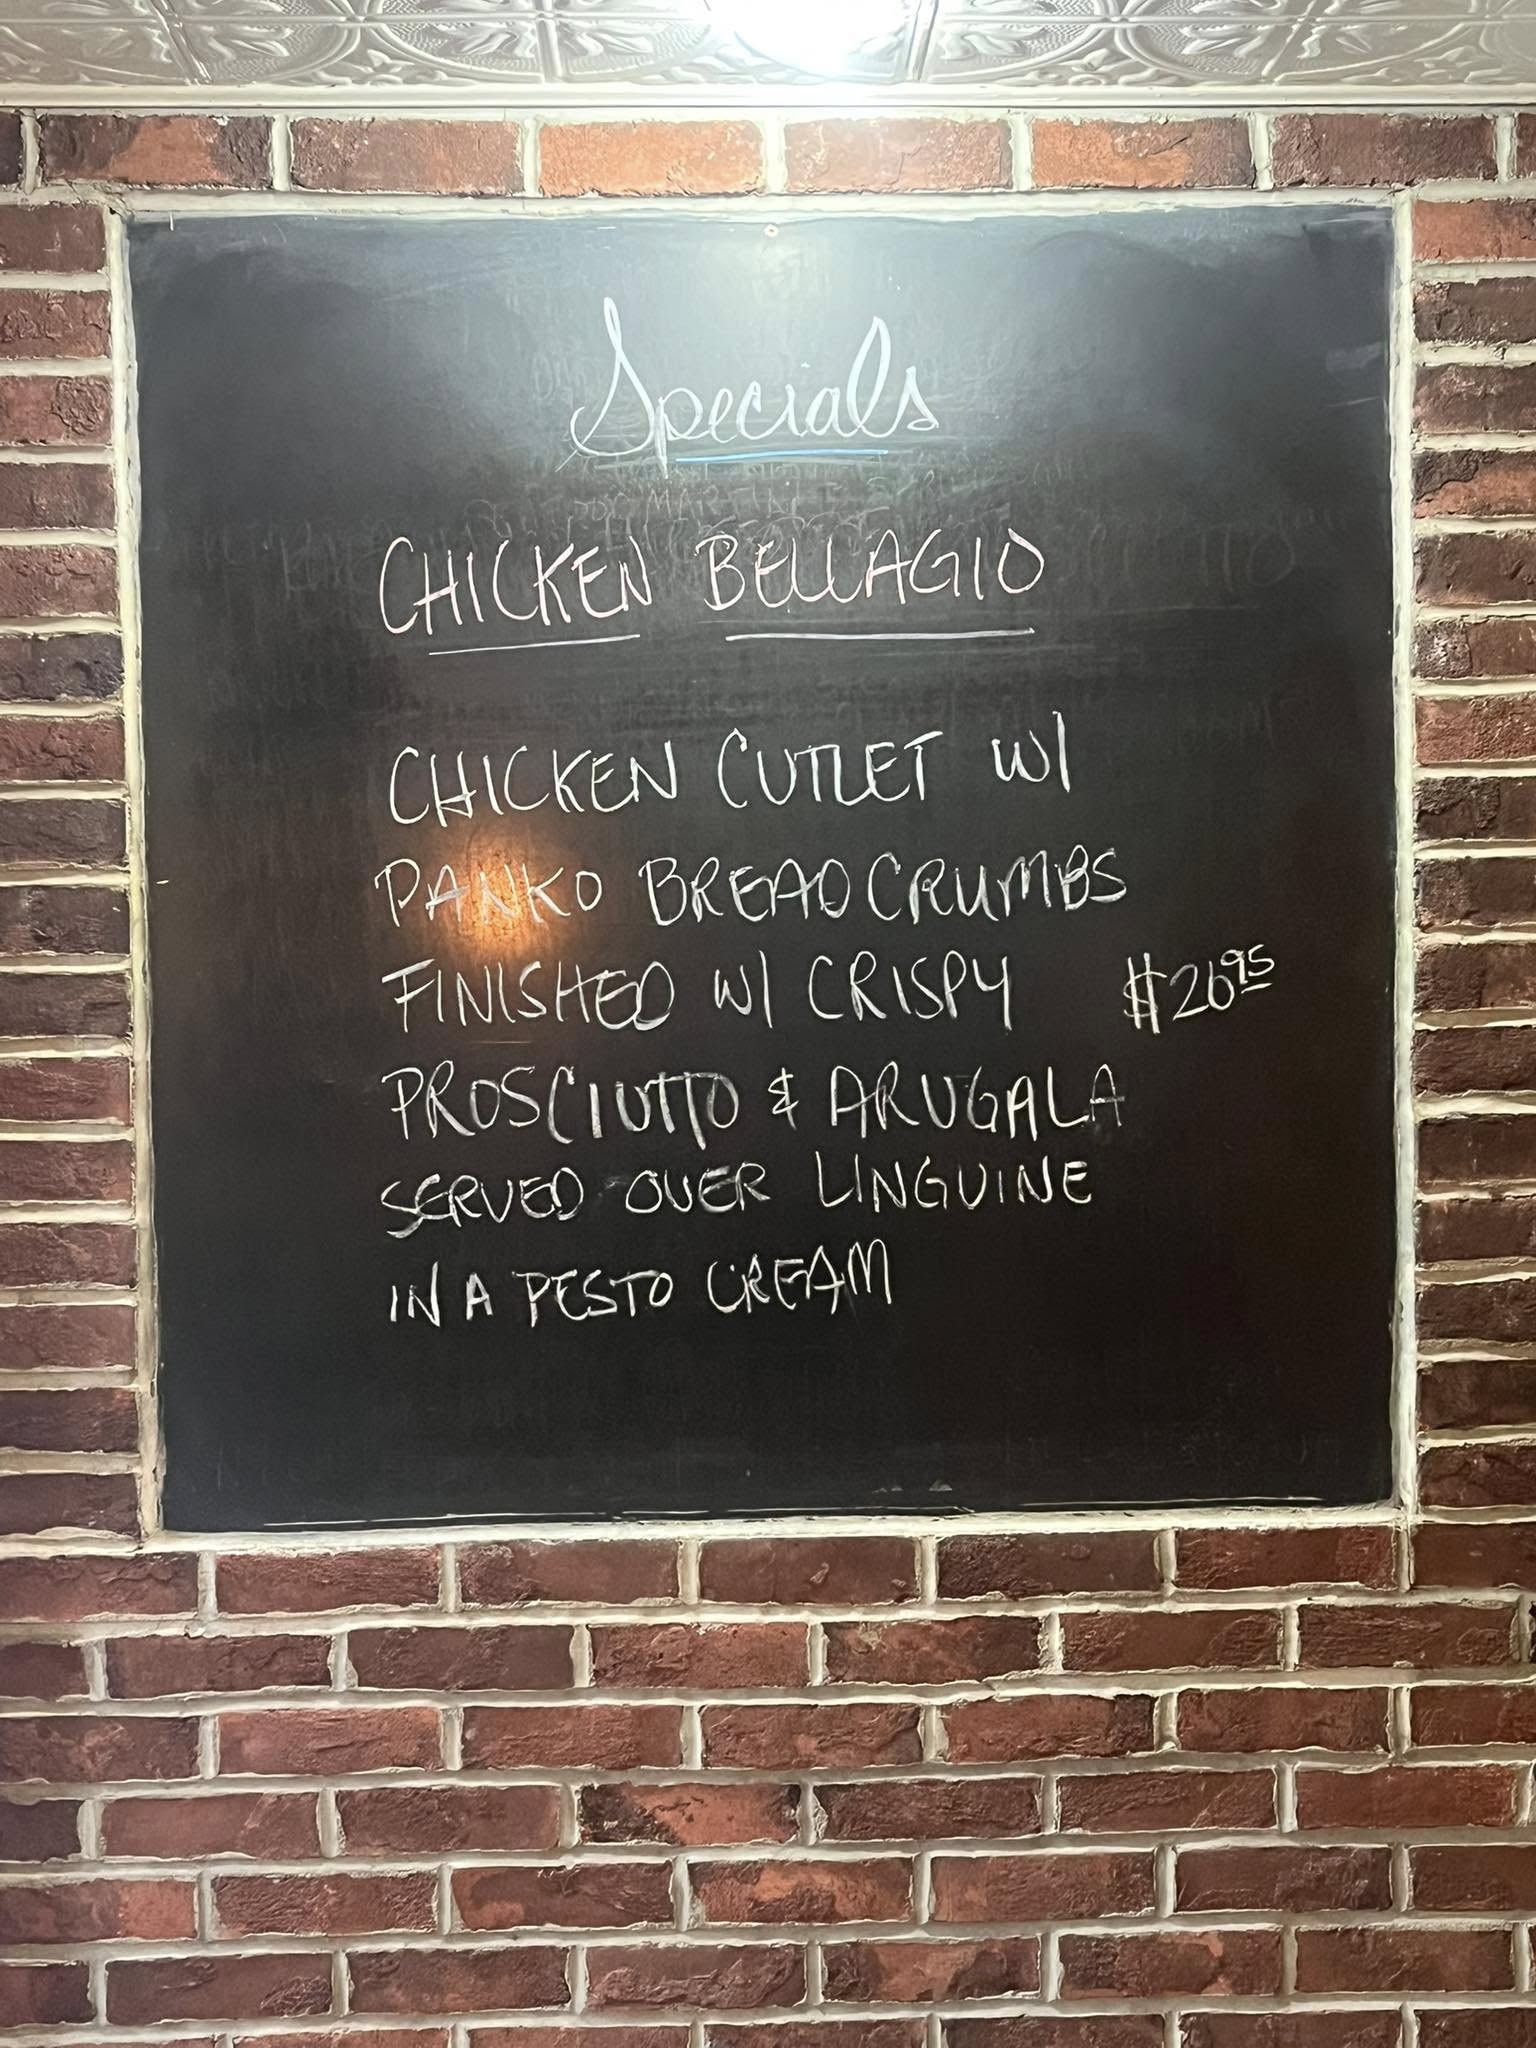 Specials
CHICKEN BELLAGIO
CHICKEN CUTLET W/
PANKO BREAD CRUMBS
FINISHED W/ CRISPY $26.95
PROSCIUTTO & ARUGALA
SERVED OVER LINGUINE
IN A PESTO CREAM